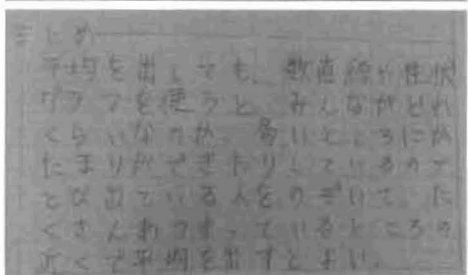 まとめ
平均を出しても、数直線や柱状
グラフを使うと、みんながどれ
くらいなのか、多いところにか
たまりができたりしているので
とび出ている人をのぞいて、た
くさん集まっているところの
近くで平均を出すとよい。